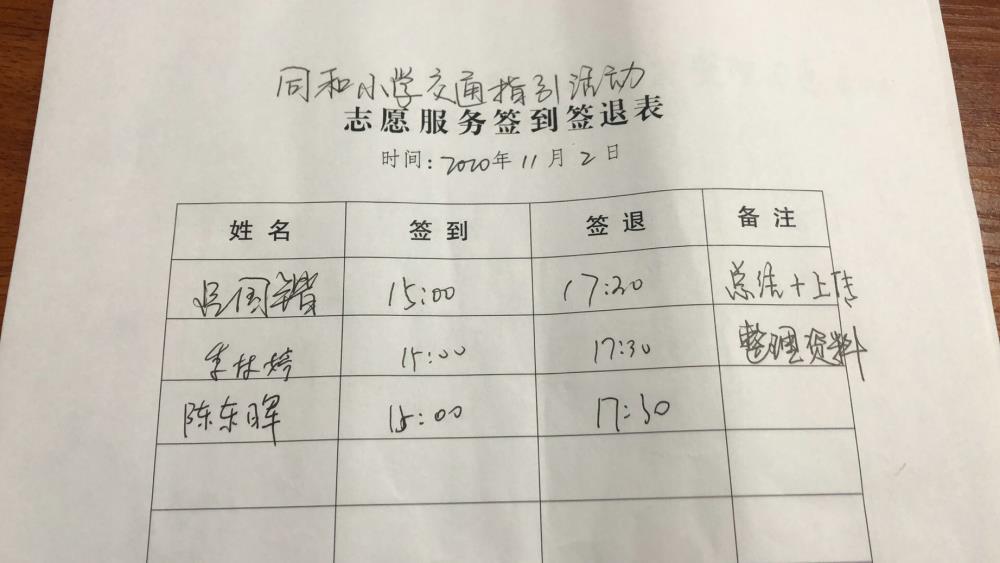 同和小学交通指引活动
志愿服务签到签退表
时间:2020年11月2日
姓名 签到 签退 备注
吕国锴 15:00 17:30 总结+上传
李林婷 15:00 17:30 整理资料
陈东晖 15:00 17:30